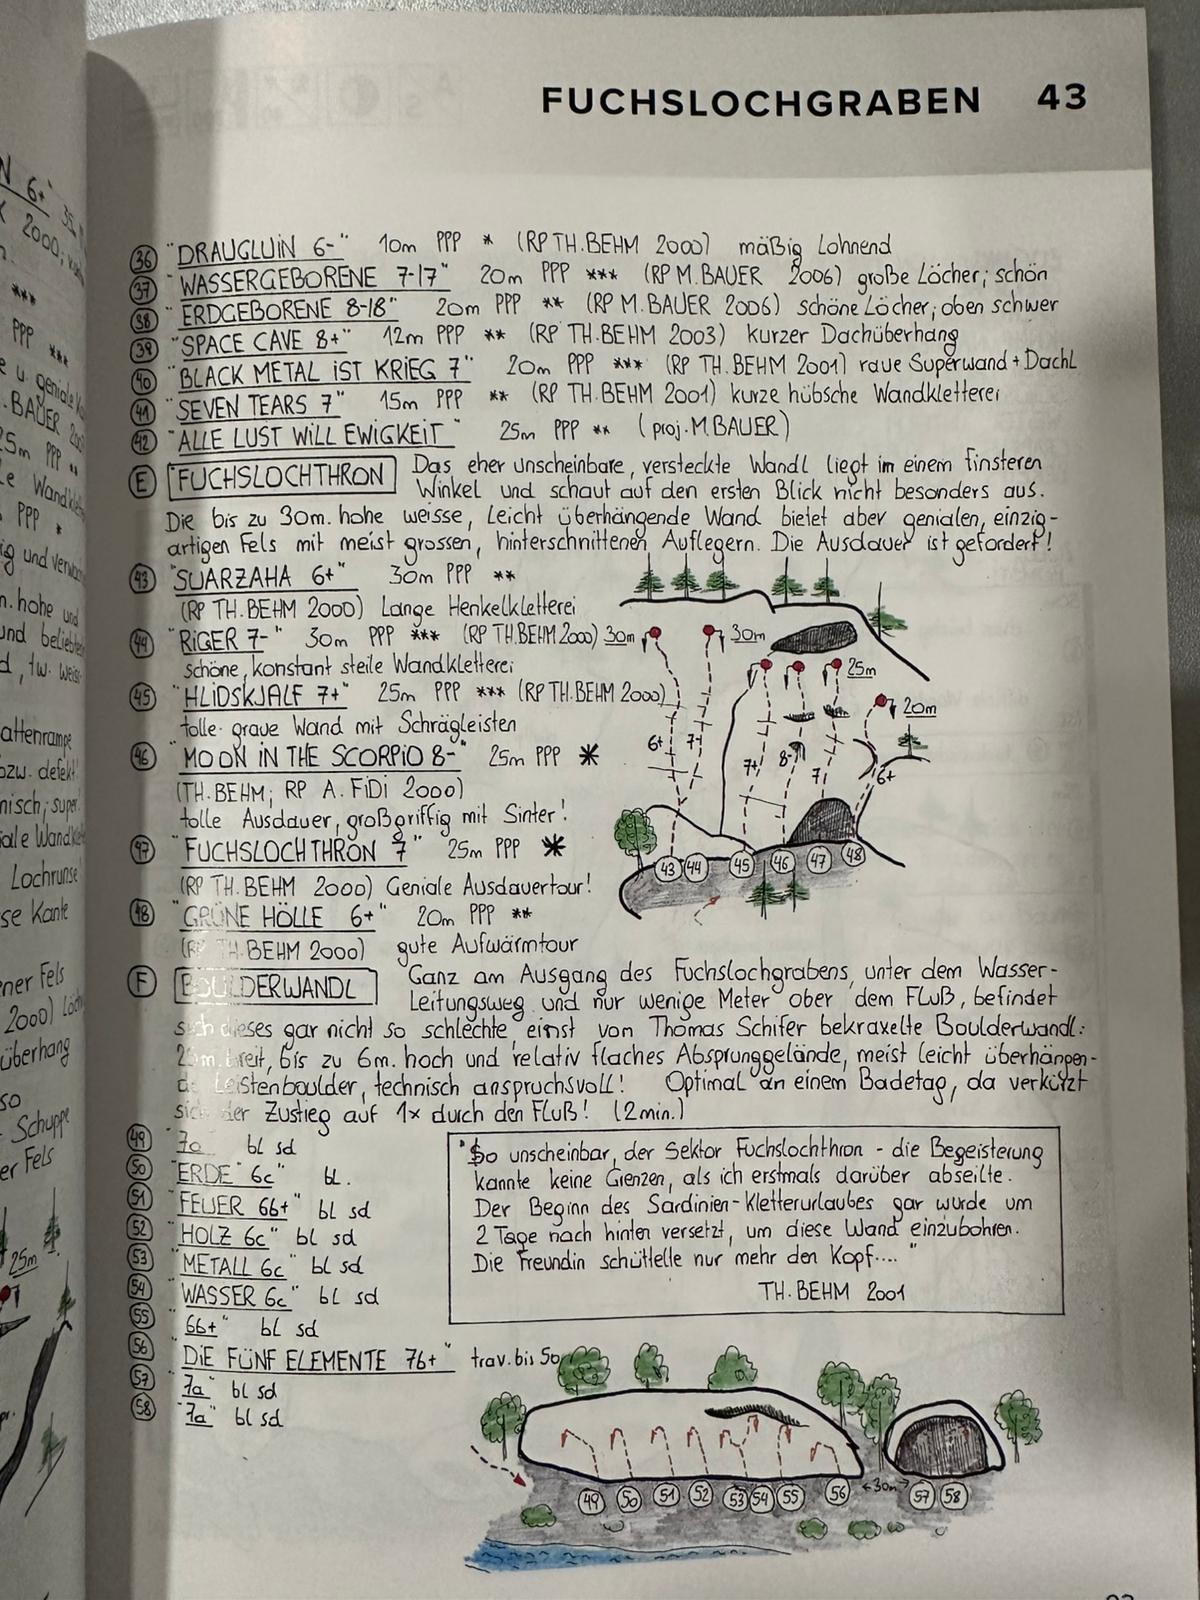 FUCHSLOCHGRABEN 43
36 "DRAUGLUIN 6-" 10m PPP * (RP TH.BEHM 2000) mäßig Lohnend
37 "WASSERGEBORENE 7-17" 20m PPP *** (RP M.BAUER 2006) große Löcher; schön
38 "ERDGEBORENE 8-18" 20m PPP ** (RP M.BAUER 2006) schöne Löcher; oben schwer
39 "SPACE CAVE 8+" 12m PPP ** (RP TH.BEHM 2003) kurzer Dachüberhang
40 "BLACK METAL iST KRiEG 7" 20m PPP *** (RP TH.BEHM 2001) raue Superwand + Dachl
41 "SEVEN TEARS 7" 15m PPP ** (RP TH.BEHM 2001) kurze hübsche Wandkletterei
42 "ALLE LUST WiLL EWiGKEiT" 25m PPP ** (proj. M.BAUER)
E FUCHSLOCHTHRON Das eher unscheinbare, versteckte Wandl liegt im einem finsteren
Winkel und schaut auf den ersten Blick nicht besonders aus.
Die bis zu 30m. hohe weisse, Leicht überhängende Wand bietet aber genialen, einzig-
artigen Fels mit meist grossen, hinterschnittenen Auflegern. Die Ausdauer ist gefordert!
43 "SUARZAHA 6+" 30m PPP **
(RP TH.BEHM 2000) Lange Henkelkletterei
44 "RiGER 7-" 30m PPP *** (RP TH.BEHM 2000)
schöne, konstant steile Wandkletterei
45 "HLiDSKJALF 7+" 25m PPP *** (RP TH.BEHM 2000)
tolle graue Wand mit Schrägleisten
46 "MOON iN THE SCORPiO 8-" 25m PPP *
(TH.BEHM; RP A. FiDi 2000)
tolle Ausdauer, großgriffig mit Sinter!
47 "FUCHSLOCHTHRON 7" 25m PPP *
(RP TH.BEHM 2000) Geniale Ausdauertour!
48 "GRÜNE HÖLLE 6+" 20m PPP **
(RP TH.BEHM 2000) gute Aufwärmtour
30m 30m 25m 20m
6+ 7- 7+ 8- 7 6+
43 44 45 46 47 48
F BOULDERWANDL Ganz am Ausgang des Fuchslochgrabens, unter dem Wasser-
Leitungsweg und nur wenige Meter ober dem Fluß, befindet
sich dieses gar nicht so schlechte, einst von Thomas Schifer bekraxelte Boulderwandl:
breit, bis zu 6m. hoch und relativ flaches Absprunggelände, meist leicht überhängen-
de Leistenboulder, technisch anspruchsvoll! Optimal an einem Badetag, da verkürzt
sich der Zustieg auf 1x durch den Fluß! (2min.)
49 "7a" bl sd
50 "ERDE 6c" bl.
51 "FEUER 6b+" bl sd
52 "HOLZ 6c" bl sd
53 "METALL 6c" bl sd
54 "WASSER 6c" bl sd
55 "6b+" bl sd
56 "DiE FÜNF ELEMENTE 7b+" trav. bis 50
57 "7a" bl sd
58 "7a" bl sd
"So unscheinbar, der Sektor Fuchslochthron - die Begeisterung
kannte keine Grenzen, als ich erstmals darüber abseilte.
Der Beginn des Sardinien-Kletterurlaubes gar wurde um
2 Tage nach hinten versetzt, um diese Wand einzubohren.
Die Freundin schüttelle nur mehr den Kopf...."
TH. BEHM 2001
49 50 51 52 53 54 55 56 30m 57 58